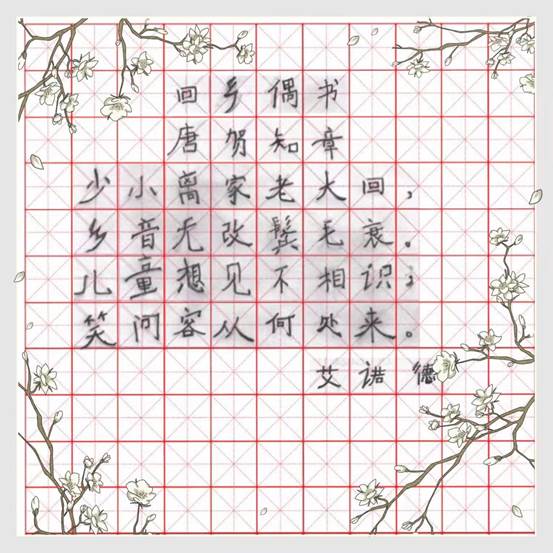 回乡偶书
唐贺知章
少小离家老大回，
乡音无改鬓毛衰。
儿童想见不相识；
笑问客从何处来。
艾诺德